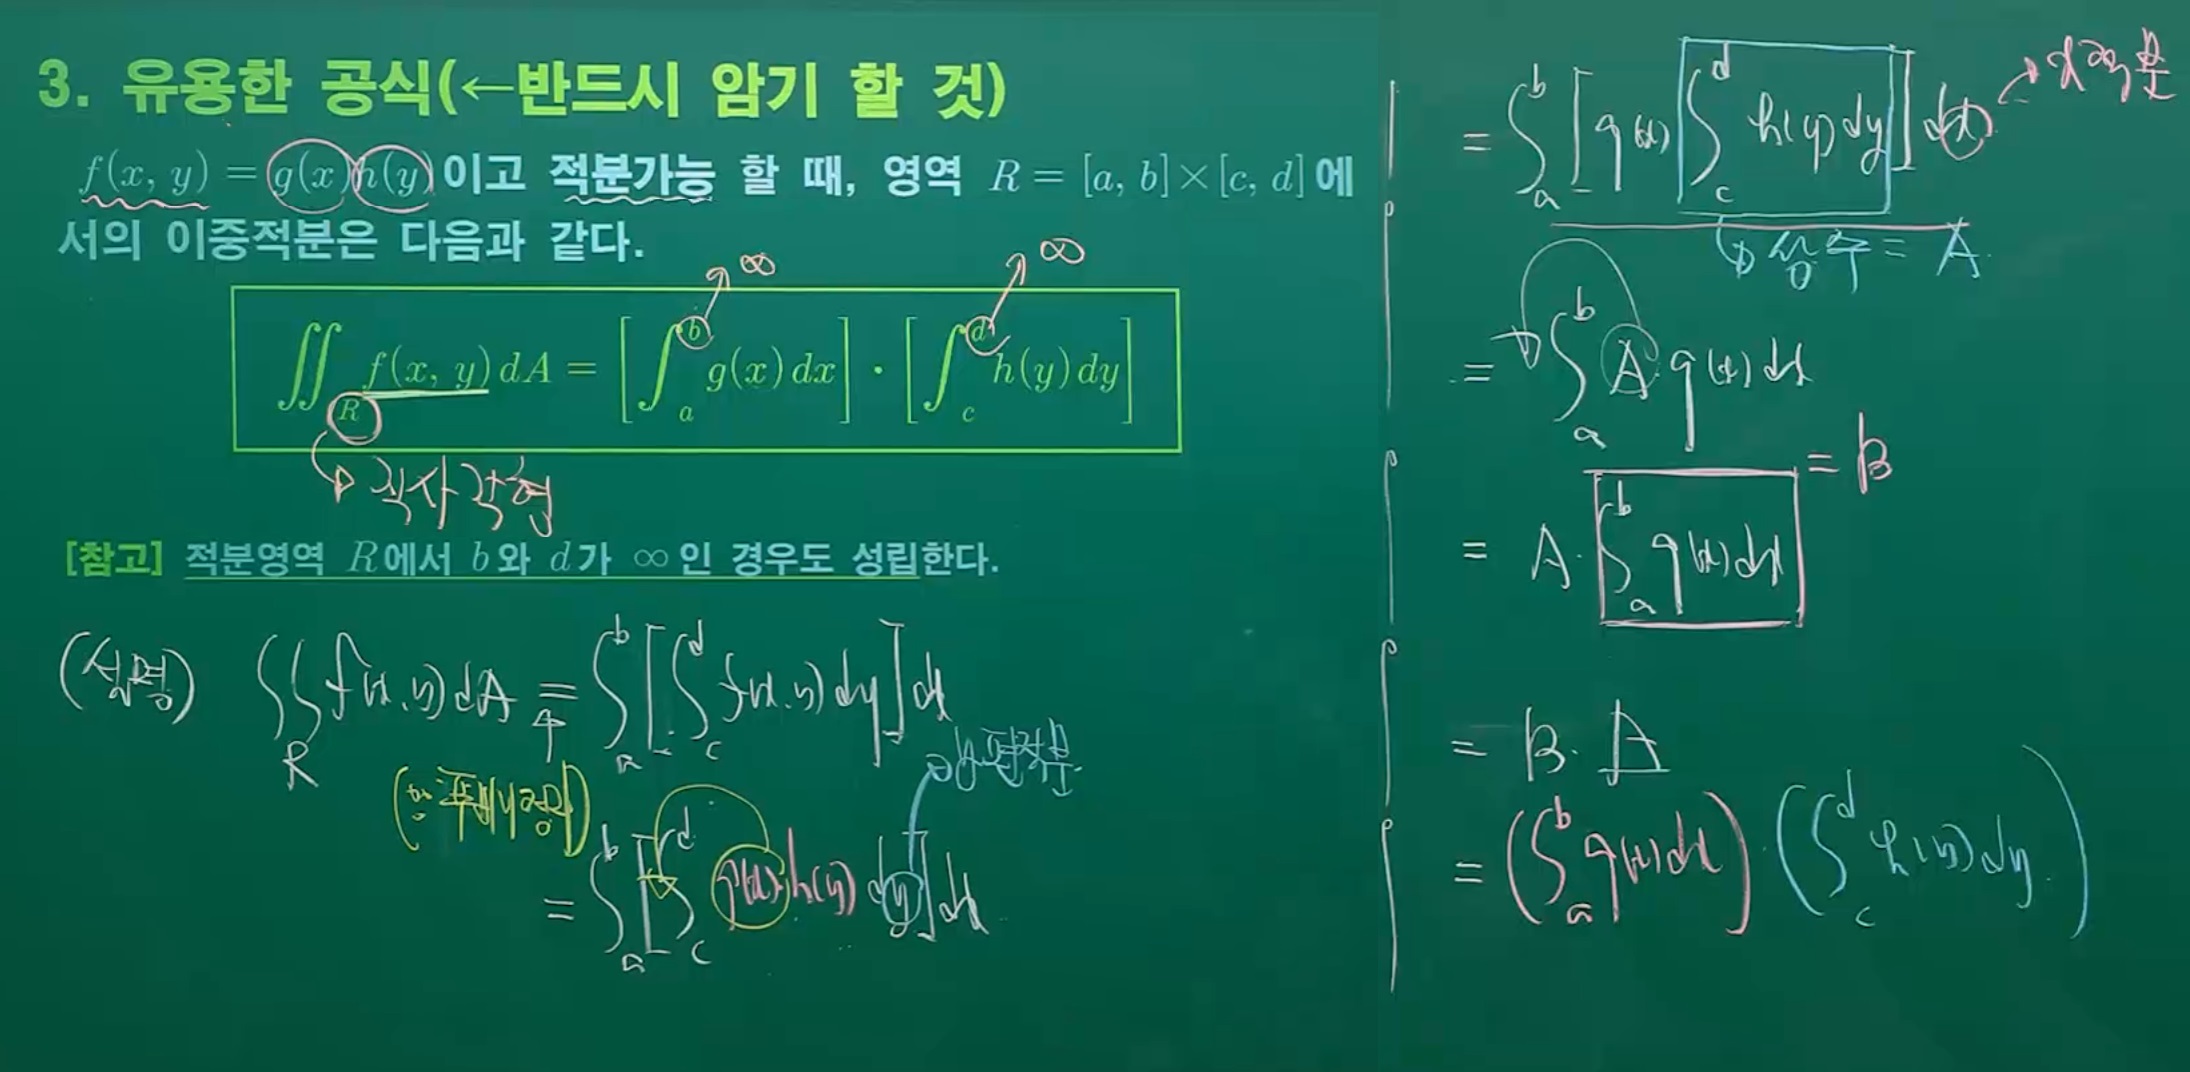 3. 유용한 공식(←반드시 암기 할 것)
f(x, y) = g(x)h(y)이고 적분가능 할 때, 영역 R = [a, b]×[c, d]에
서의 이중적분은 다음과 같다.
∞ ∞
∬_R f(x, y) dA = [∫_a^b g(x) dx] · [∫_c^d h(y) dy]
직사각형
[참고] 적분영역 R에서 b와 d가 ∞인 경우도 성립한다.
(설명) ∬_R f(x,y) dA = ∫_a^b [∫_c^d f(x,y) dy] dx
(∵ 푸비니정리) y편적분
= ∫_a^b [∫_c^d g(x)·h(y) dy] dx
= ∫_a^b [g(x) ∫_c^d h(y) dy] dx x적분
상수 = A
= ∫_a^b A·g(x) dx
= A·∫_a^b g(x) dx = B
= B·A
= (∫_a^b g(x) dx)·(∫_c^d h(y) dy)